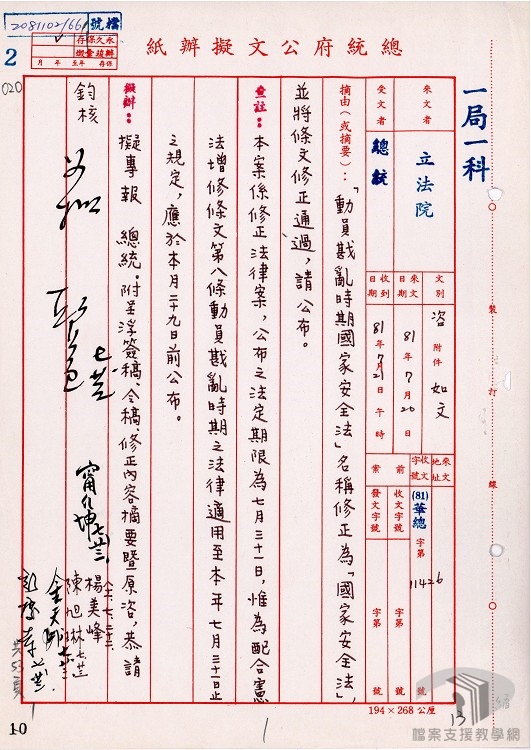 檔號
2081102/66
永久保存
擬辦彙繳
年 月
存保年至
總統府公文擬辦紙
2
020
一局一科
來文者
立法院
受文者
總統
文別
咨
附件
如文
來文日期
81年7月20日
收到日期
81年7月21日午時
來文字號
收文
(81)華總
字第
11426
號
前案
收文字號
字第
號
發文字號
字第
號
摘由(或摘要):「動員戡亂時期國家安全法」名稱修正為「國家安全法」,
並將條文修正通過,請公布。
查註:本案係修正法律案,公布之法定期限為七月三十一日,惟為配合憲
法增修條文第八條動員戡亂時期之法律適用至本年七月三十一日止
之規定,應於本月二十九日前公布。
擬辦:擬專報 總統.附呈浮簽稿、令稿、修正內容摘要暨原咨,恭請
鈞核
楊美峰
陳旭琳
裝
打
線
194×268公厘
10
1
13
檔案支援教學網